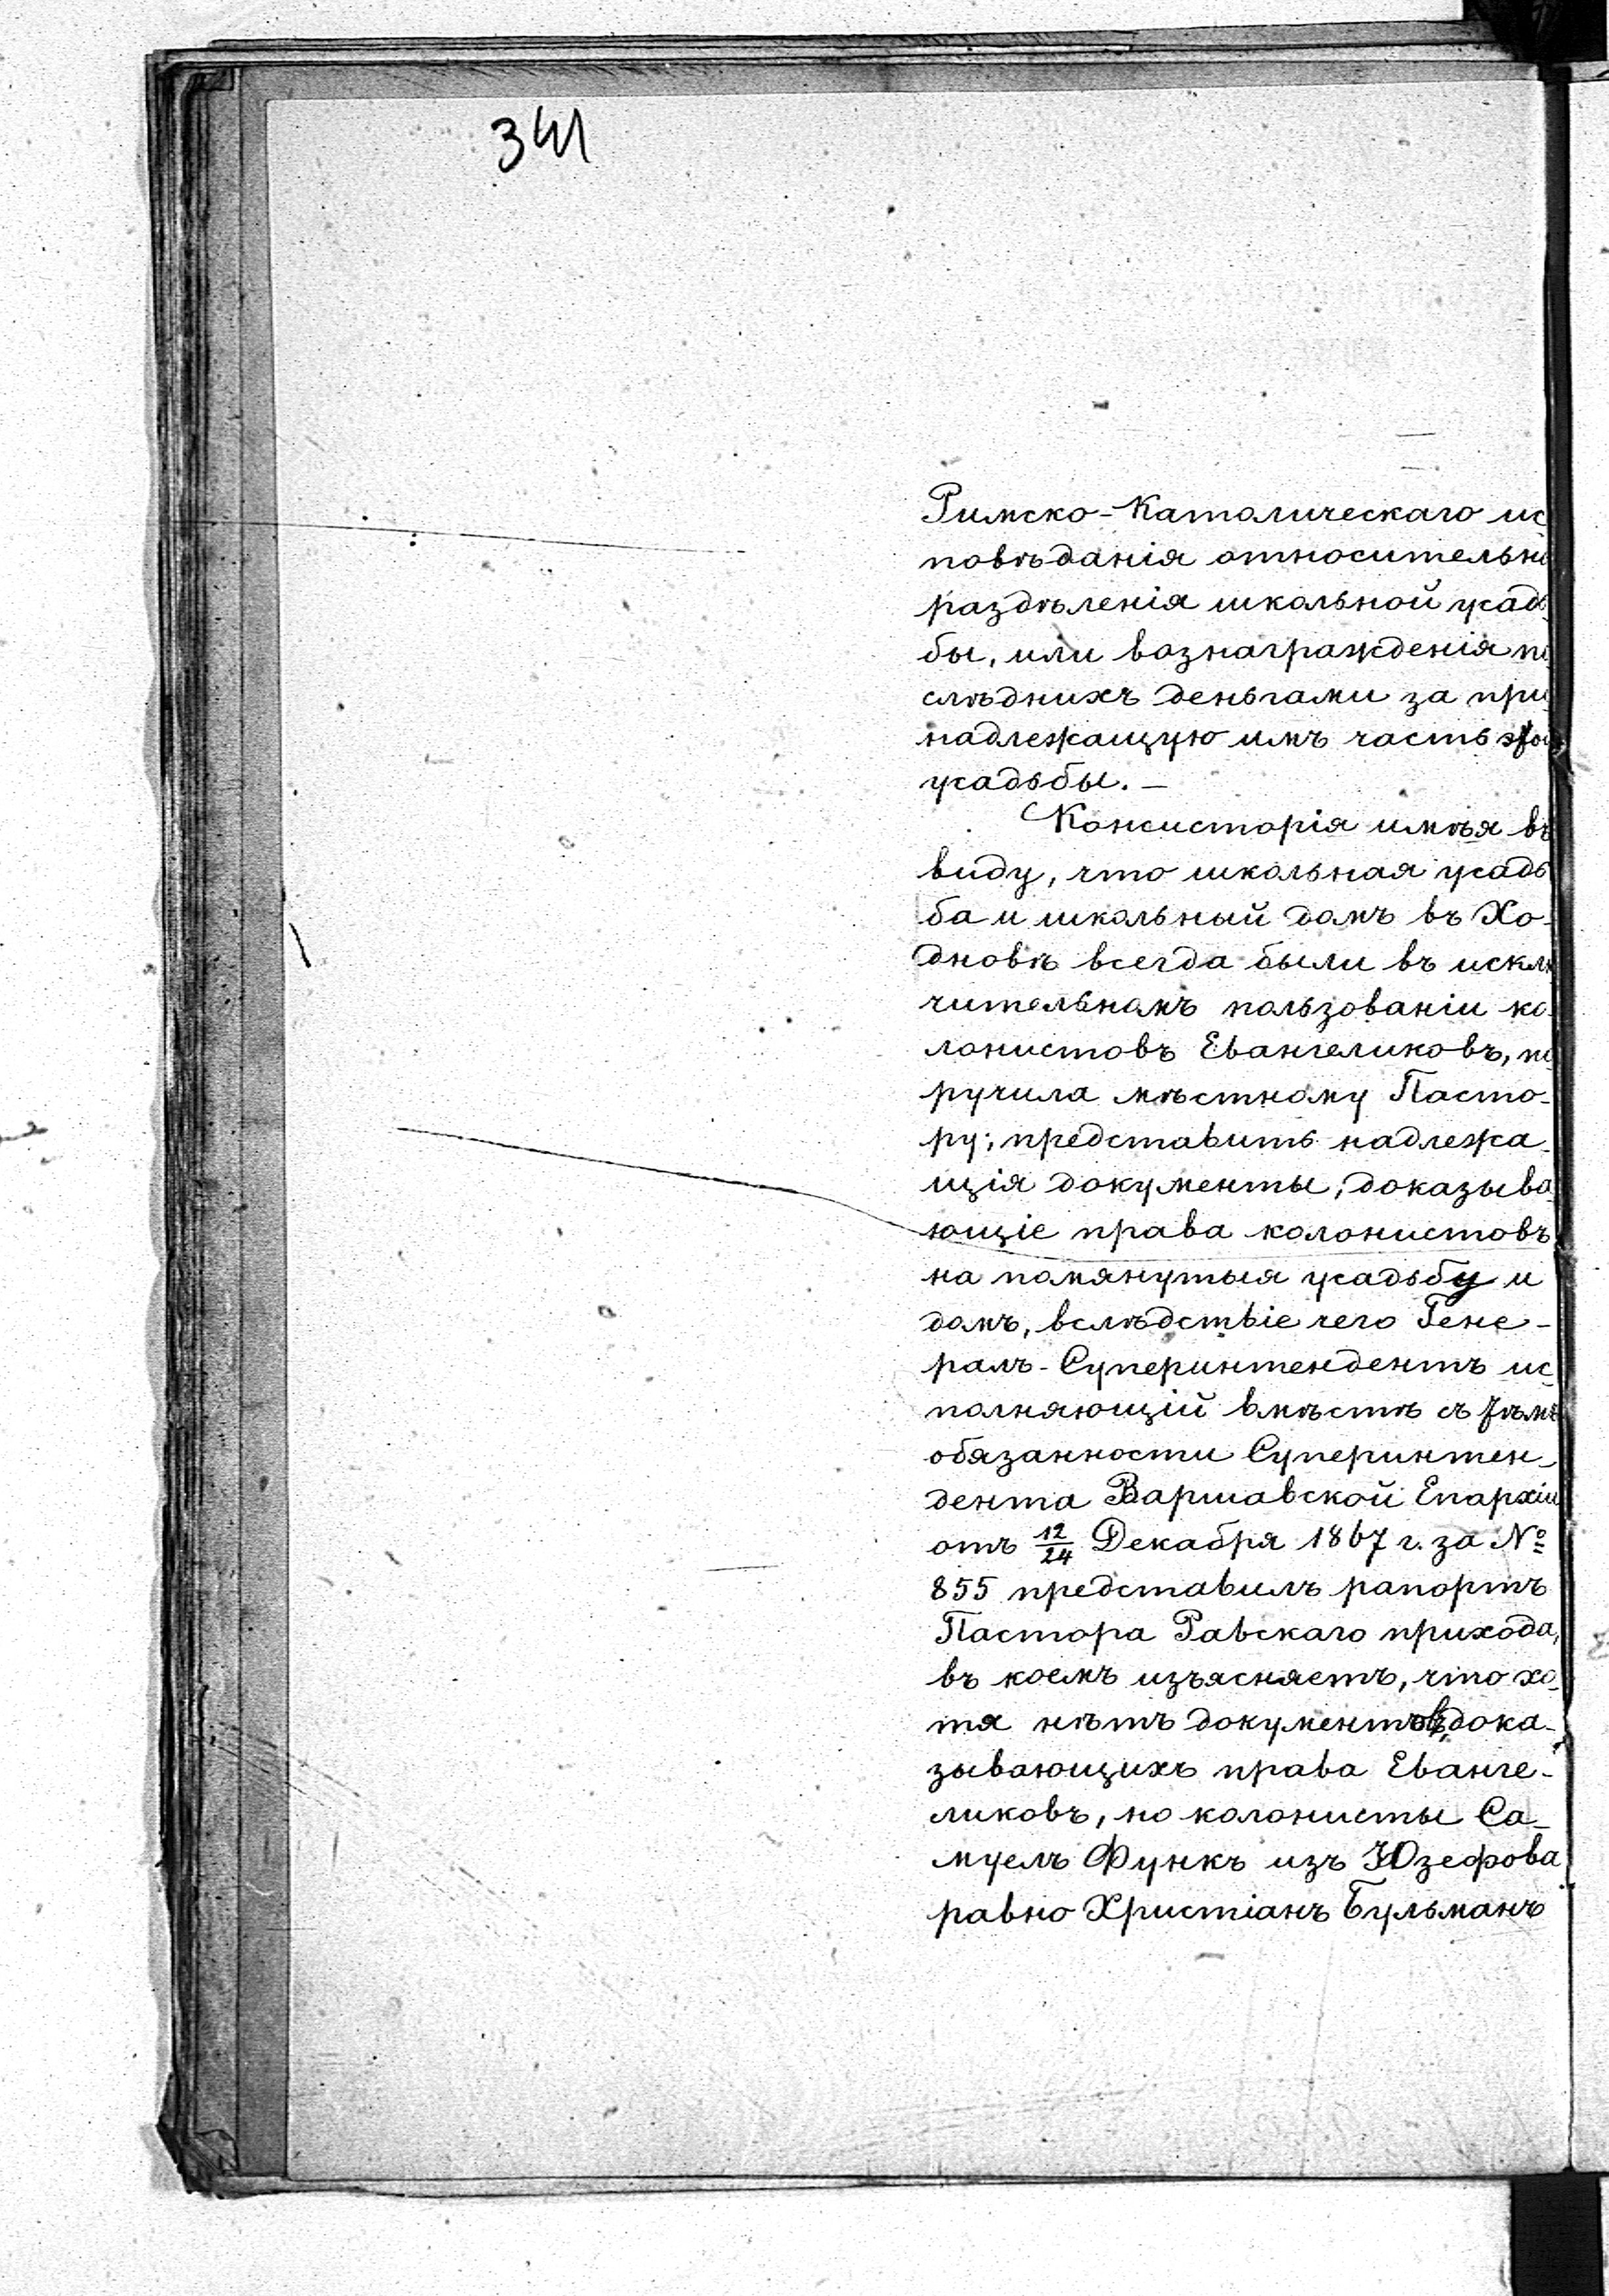 341
Римско-Католическаго ис
повѣданія относительно
раздѣленія школьной усадь
бы, или вознагражденія по
слѣднихъ деньгами за при
надлежащую имъ часть этой
усадьбы. —
Консисторія имѣя въ
виду, что школьная усадь
ба и школьный домъ въ Хо-
дновѣ всегда были въ исклю
чительномъ пользованіи ко-
лонистовъ Евангеликовъ, по
ручила мѣстному Пасто-
ру; представить надлежа-
щія документы, доказыва-
ющіе права колонистовъ
на помянутыя усадьбу и
домъ, вслѣдствіе чего Гене-
ралъ-Суперинтендентъ ис-
полняющій вмѣстѣ съ тѣмъ
обязанности Суперинтен-
дента Варшавской Епархіи
отъ 12/24 Декабря 1867 г. за №
855 представилъ рапортъ
Пастора Равскаго прихода,
въ коемъ изъясняетъ, что хо-
тя нѣтъ документовъ, дока-
зывающихъ права Еванге-
ликовъ, но колонисты Са-
муелъ Функъ изъ Юзефова
равно Христіанъ Бульманъ